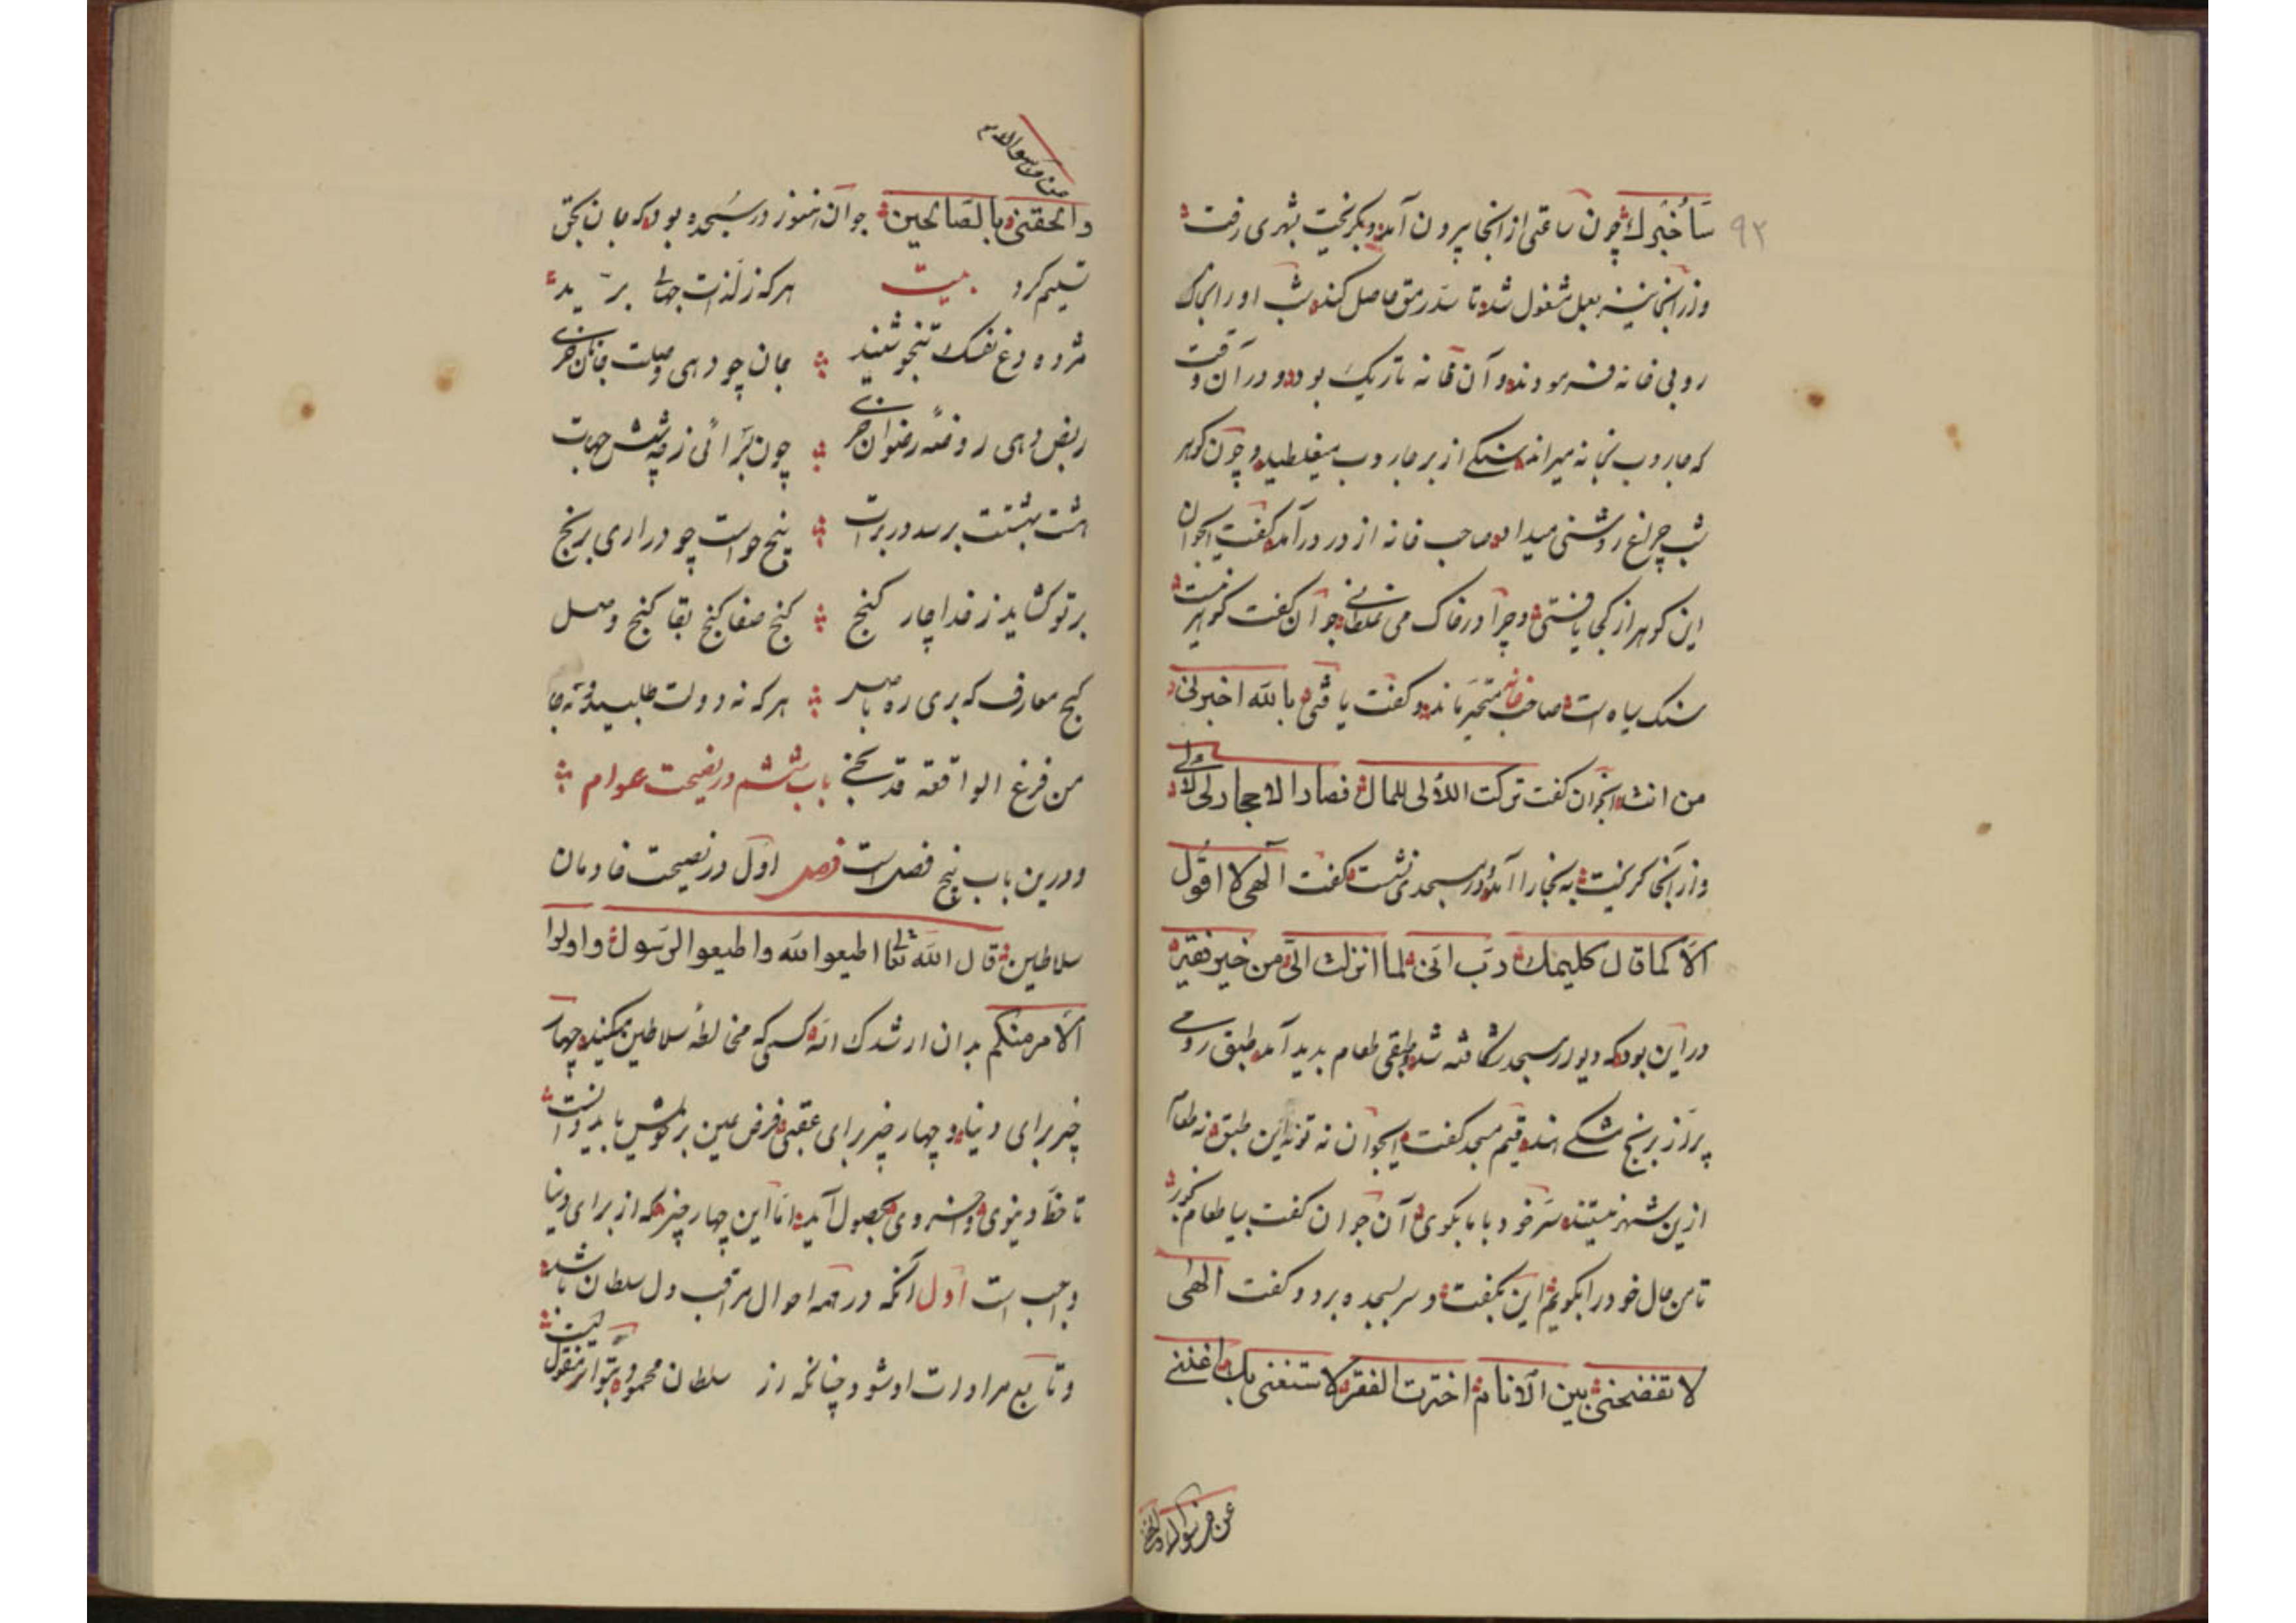 ۹۲
سَأُخبرك چون ساعتی از انجا بیرون آمد و بگریخت بشهری رفت
وز انجا نیز بعمل مشغول شد تا سدّ رمق حاصل کند شب او را بخاک
روبی خانه فرمودند و آن خانه تاریک بود و در آن وقت
که جاروب بخانه میراند سنکی از بر جاروب میغلطید و چون کوهر
شب چراغ روشنی میداد صاحب خانه از در درآمد کفت ایجوان
این کوهر از کجا یافتی و چرا در خاک می غلطانی جوان کفت کوهر نیست
سنک سیاه است صاحب خانه متحیّر بماند و کفت یا فتی بالله اخبرنی
من انت انجوان کفت ترکت اللآلی للمال فصار الاحجار لی لآلی
وز آنجا کریخت به بخارا آمد و در مسجدی نشست کفت الهی لا اقول
الّا کما قال کلیمك ربّ انّی لما انزلت الیّ من خیر فقیر
در این بود که دیوار مسجد شکافته شد و طبقی طعام بدید آمد طبق رومی
پر از برنج قیم مسجد کفت ایجوان نه تو نه این طبق نه طعام
ازین شهر نیستند سرّ خود با ما بکوی آن جوان کفت بیا طعام بخور
تا من حال خود را بکویم این بکفت و سر بسجده برد و کفت الهی
لا تفضحنی بین الانام اخترت الفقر لاستغنی بك اغننی
عن من سواك والحقنی
من سواك
والحقنی بالصّالحین جوان هنوز در سجده بود که جان بحق
تسلیم کرد بیت هر که ز لذّات جهان برید
مژده نفسک شنید جان چو دهی وصلت جانان خری
ربض دهی روضهٔ رضوان خری چون بدر آئی ز شش جهات
هشت بهشتت برسد در برات پنج حواست چو در آری برنج
بر تو کشاید ز خدا چار کنج کنج صفا کنج بقا کنج وصل
کنج معارف که بری ره باصل هر که نه دولت طلبید
من فرغ الواقعة قد نجی باب ششم در نصیحت عوام
و درین باب پنج فصل است فصل اوّل در نصیحت خادمان
سلاطین قال الله تعالی اطیعوا الله واطیعوا الرّسول و اولوا
الامر منکم بدان ارشدك الله که کسی که مخالطهٔ سلاطین میکند چهار
چیز برای دنیا و چهار چیز برای عقبی فرض عین بر خویش باید دانست
تا حظّ دنیوی و اخروی بحصول آید امّا این چهار چیز که از برای دنیا
واجب است اوّل آنکه در همه احوال مراقب دل سلطان باشد
و تابع مرادات او شود چنانکه از سلطان محمود بتواتر منقول است